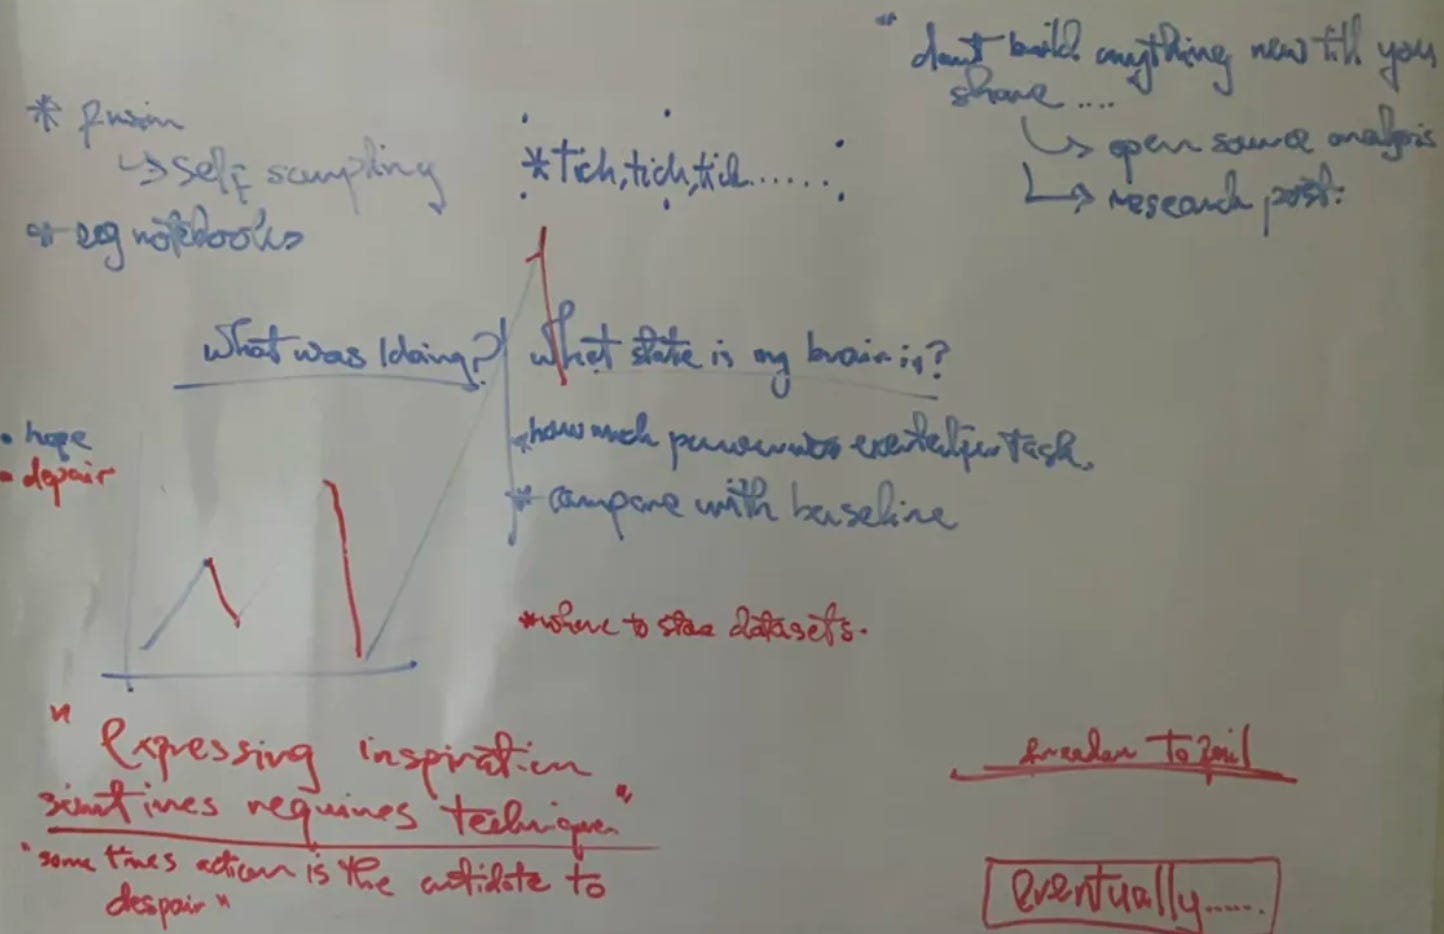 " dont build anything new till you
share ....
↳ open source analysis
↳ research post.
* fusion
↳ self sampling
* eeg notebooks
* tick, tick, tick......
What was I doing?
What state is my brain in?
* how much power was exerted per task.
* compare with baseline
• hope
• depair
* where to store datasets.
" Expressing inspiration
sometimes requires technique "
"some times action is the antidote to
despair"
freedom to fail
eventually......